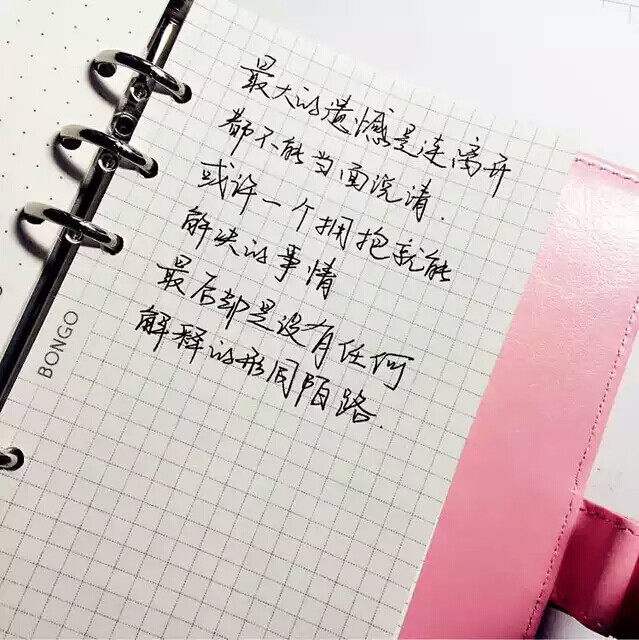 最大的遗憾是连离开
都不能当面说清.
或许一个拥抱就能
解决的事情
最后却是没有任何
解释的形同陌路.
BONGO